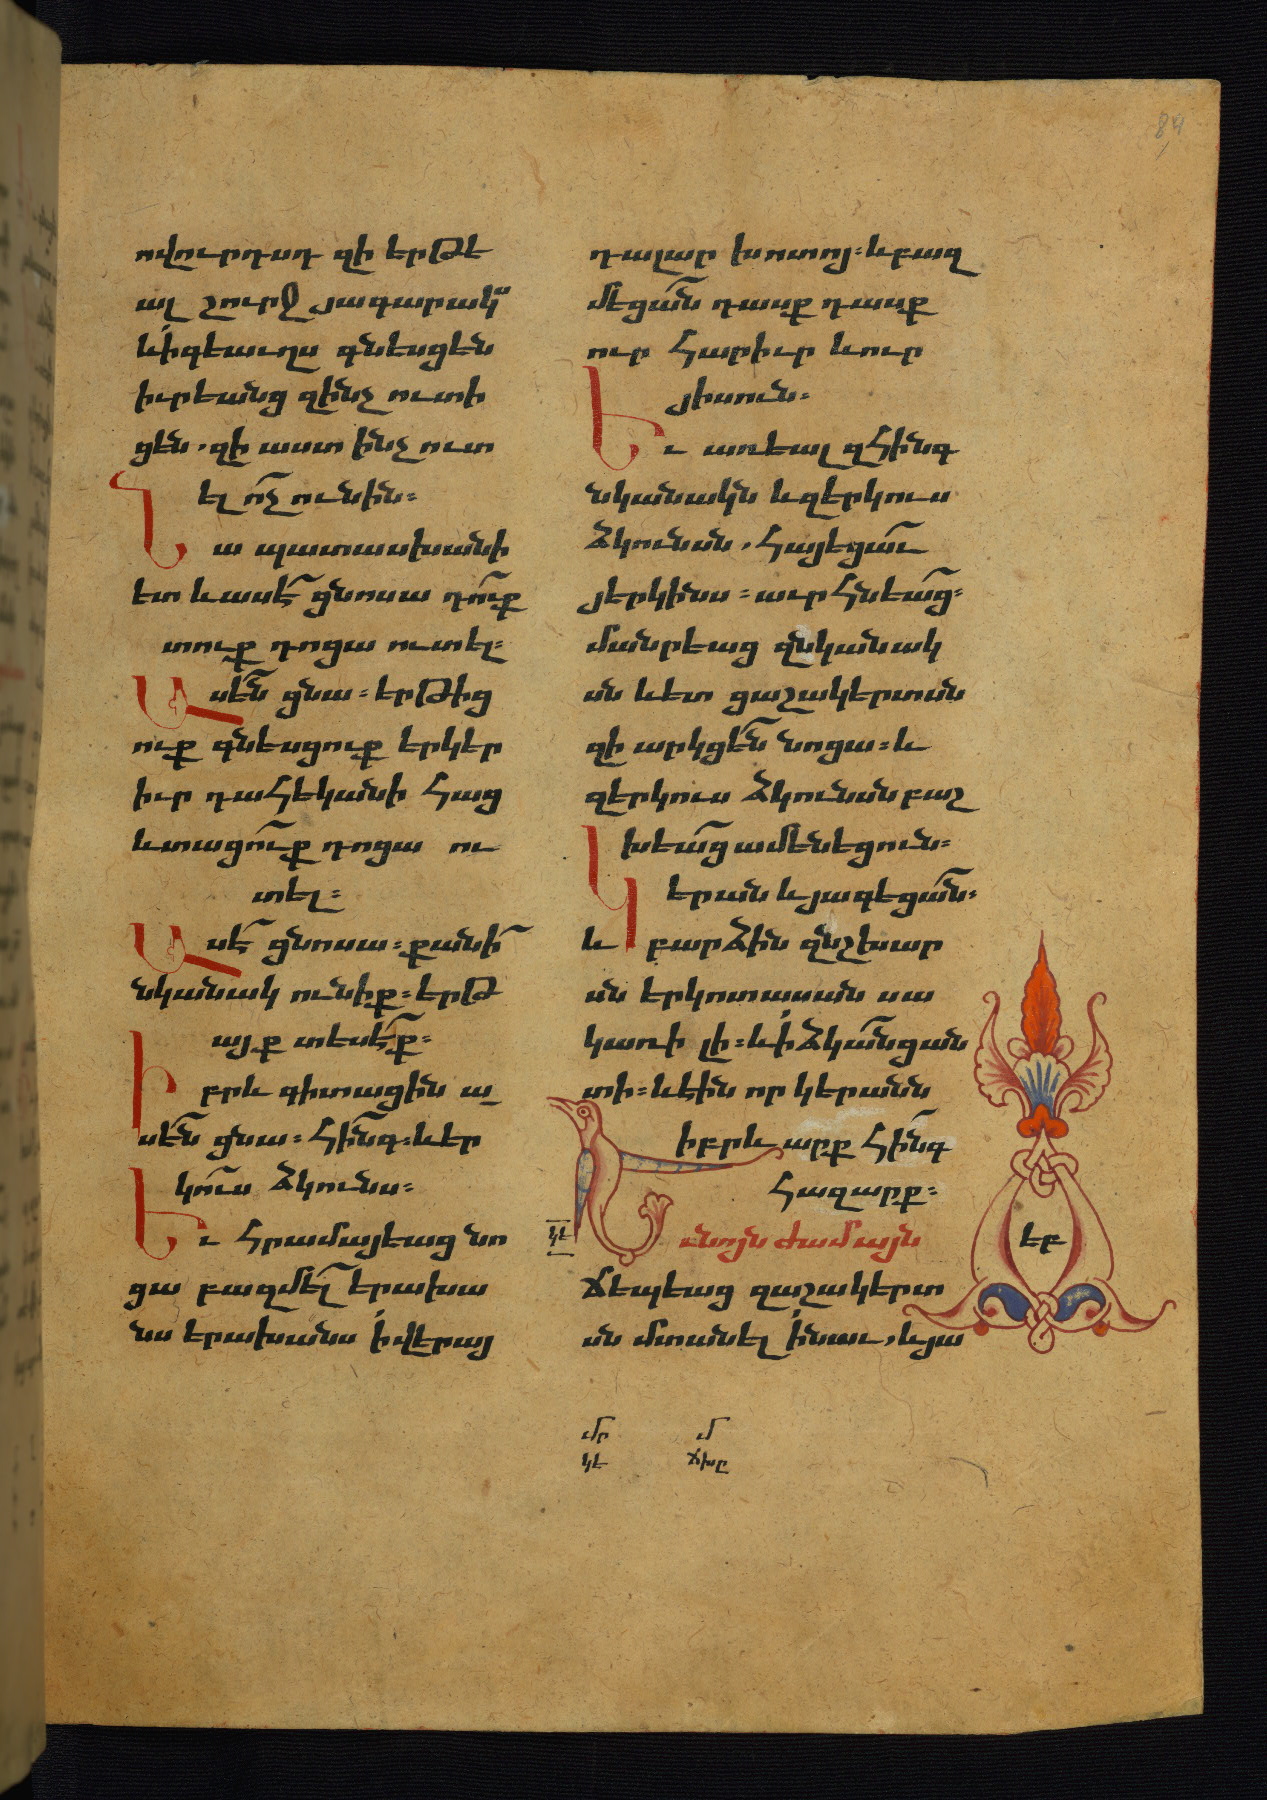 84
ողովուրդսդ զի երթե
ալ շուրջ յագարակս
և ի գեաւղս գնեսցեն
իւրեանց զինչ ուտի
ցեն, զի աստ ինչ ուտ
ել ոչ ունին։
Նա պատասխանի
ետ և ասէ ցնոսա դուք
տուք դոցա ուտել։
Ասեն ցնա։ երթից
ուք գնեսցուք երկեր
իւր դահեկանի հաց
և տացուք դոցա ու
տել։
Ասէ ցնոսա։ քանի
նկանակ ունիք։ երթ
այք տեսէք։
Իբրև գիտացին ա
սեն ցնա։ հինգ։ և եր
կուս ձկունս։
Եւ հրամայեաց նո
ցա բազմել երախա
նս երախանս ի վերայ
դալար խոտոյ։ և բազ
մեցան դասք դասք
ուր հարիւր և ուր
յիսուն։
Եւ առեալ զհինգ
նկանակն և զերկուս
ձկունսն, հայեցաւ
յերկինս։ աւրհնեաց։
մանրեաց զնկանակ
սն և ետ ցաշակերտսն
զի արկցեն նոցա։ և
զերկուս ձկունսն բաշ
խեաց ամենեցուն։
Կերան և յագեցան։
և բարձին զնշխար
սն երկոտասան սա
կառի լի։ և ի ձկանցան
տի։ և էին որ կերանն
իբրև արք հինգ
հազարք։
կէ
Եւ նոյն ժամայն
ճեպեաց զաշակերտ
սն մտանել ի նաւ, և յա
եբ
մր մ
կէ ճխը